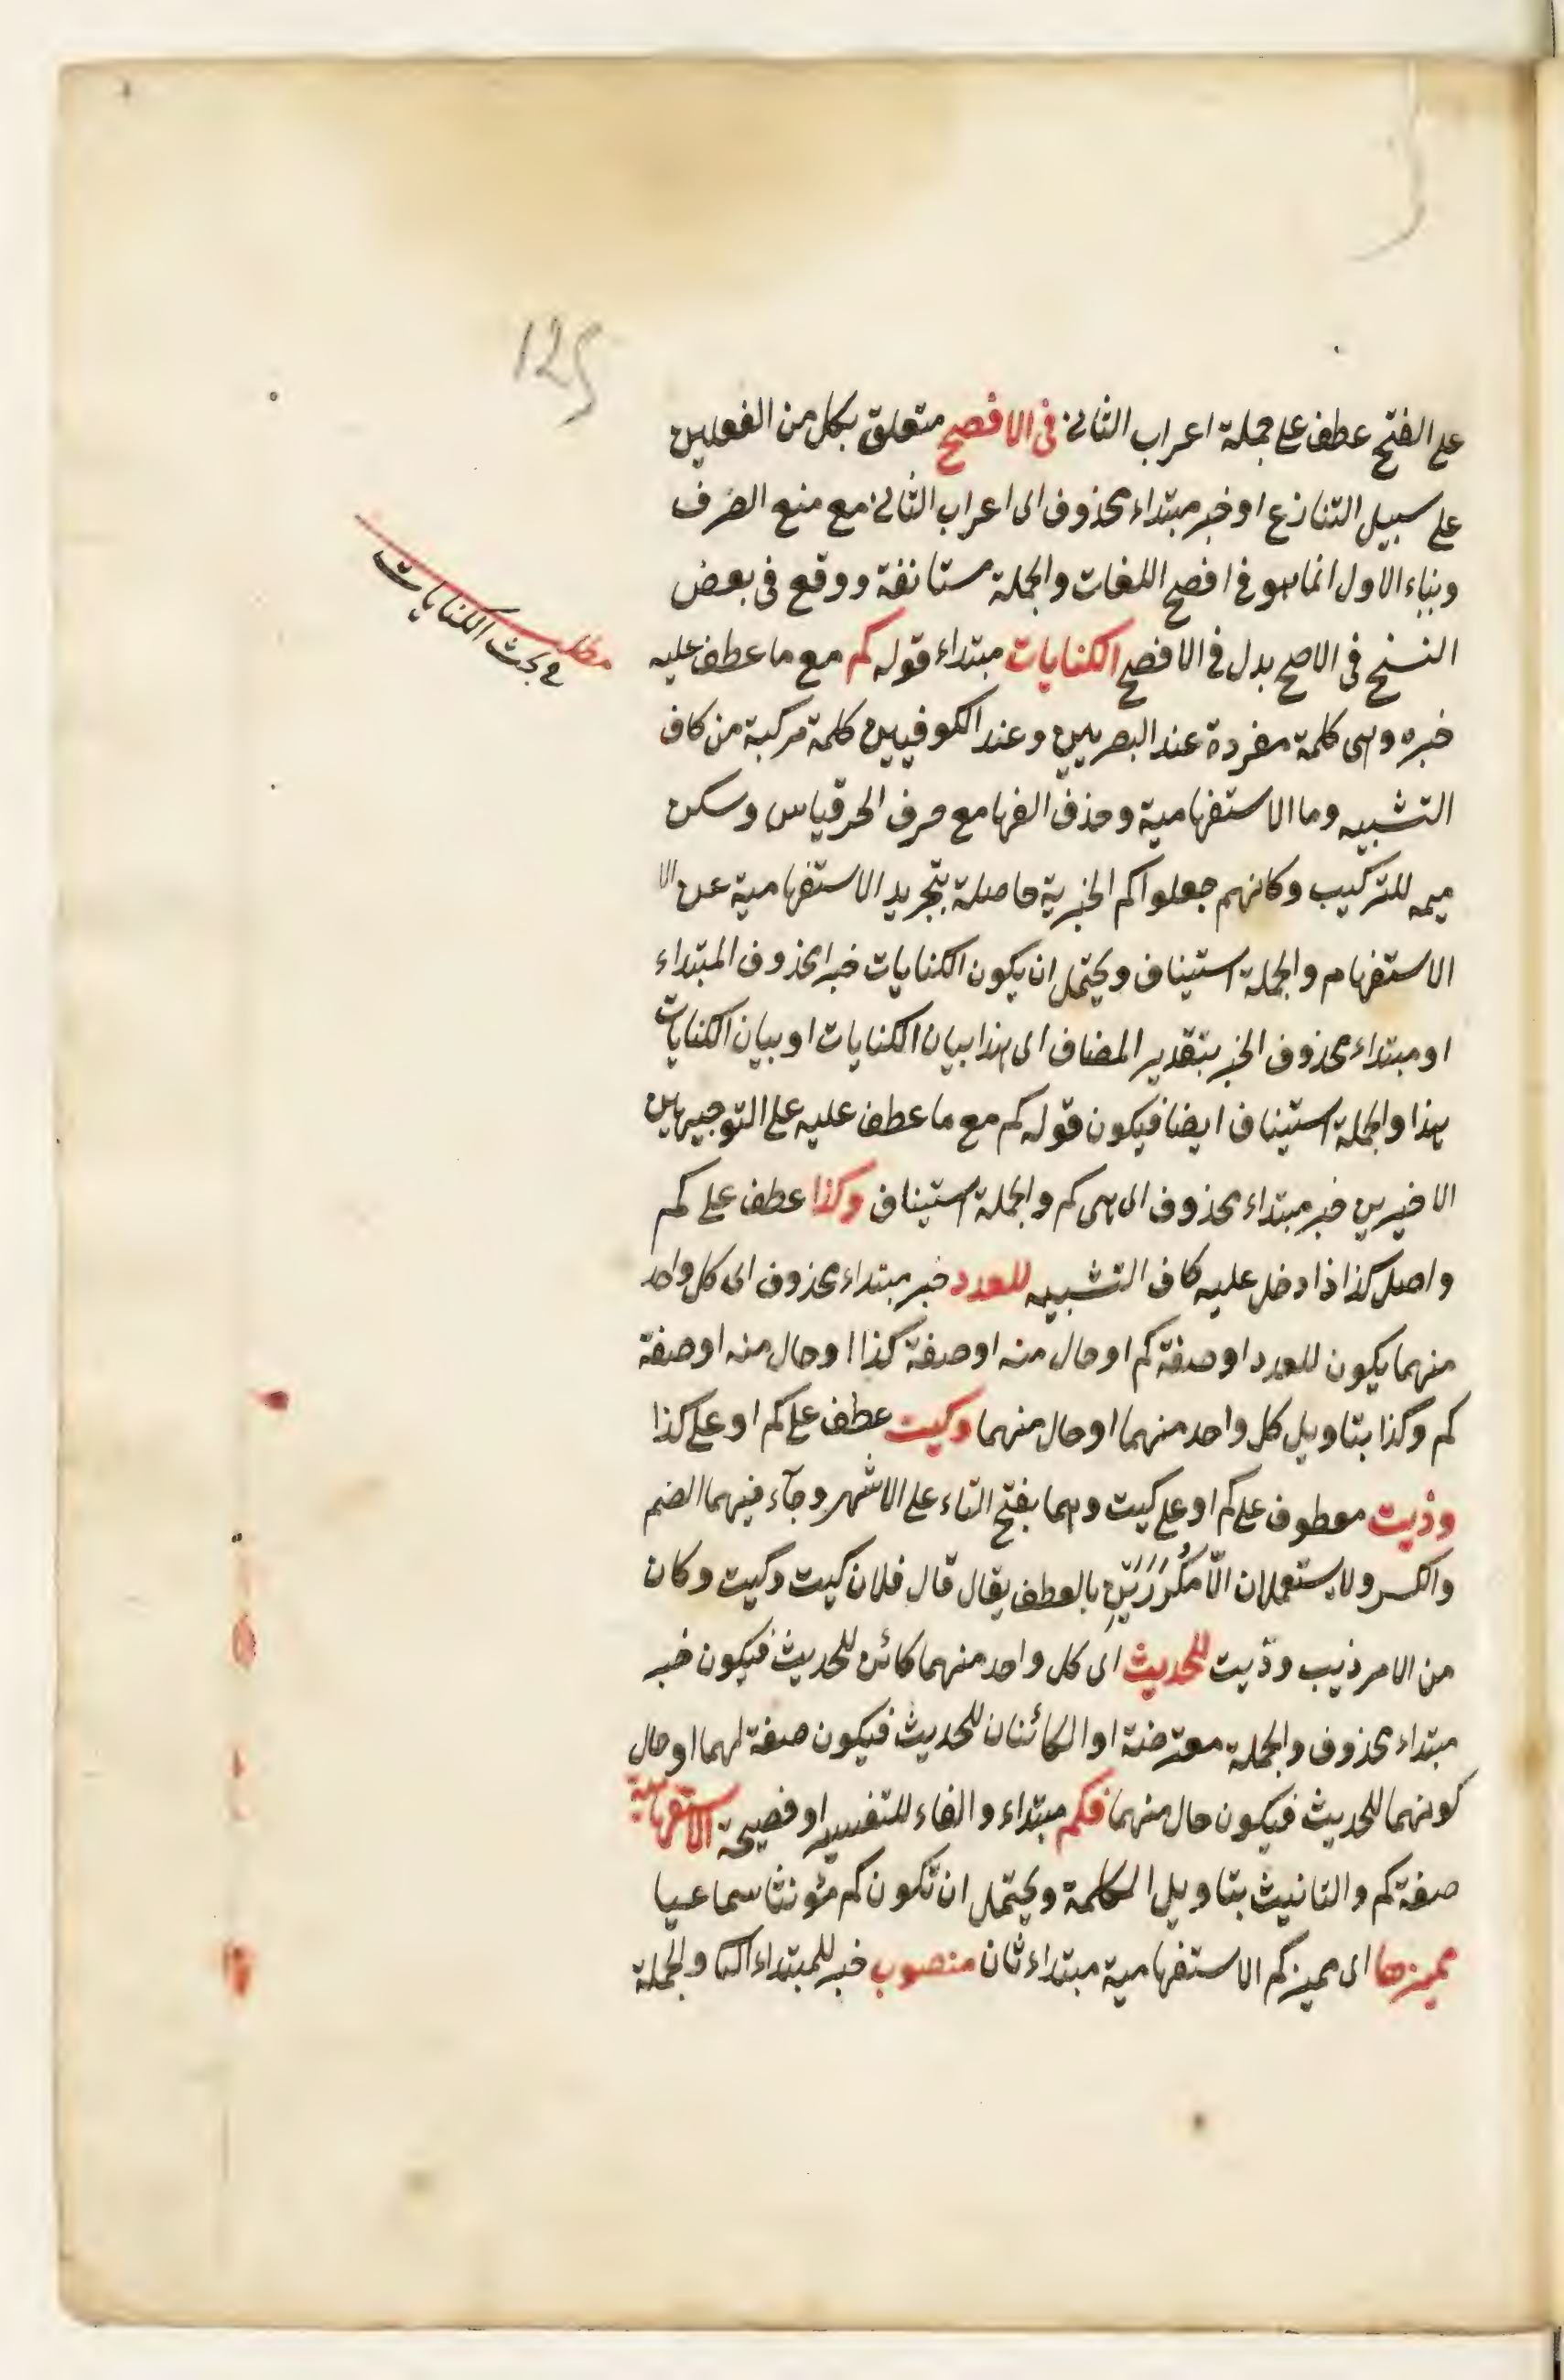 125
على الفتح عطف على جملة اعراب الثانى فى الافصح متعلق بكل من الفعلين
على سبيل التنازع او خبر مبتداء محذوف اى اعراب الثانى مع منع الصرف
وبناء الاول انما هو فى افصح اللغات والجملة مستانفة ووقع فى بعض
النسخ فى الاصح بدل فى الافصح الكنايات مبتداء قوله كم مع ما عطف عليه
مطلب فى بحث الكنايات
خبره وهى كلمة مفردة عند البصريين وعند الكوفيين كلمة مركبة من كاف
التشبيه وما الاستفهامية وحذف الفها مع حرف الجر قياس وسكن
ميمه للتركيب وكانهم جعلوا كم الخبرية حاصلة بتجريد الاستفهامية عن الا
الاستفهام والجملة استيناف ويحتمل ان يكون الكنايات خبرا محذوف المبتداء
او مبتداء محذوف الخبر بتقدير المضاف اى هذا بيان الكنايات او بيان الكنايات
هذا والجملة استيناف ايضا فيكون قوله كم مع ما عطف عليه على التوجيهين
الاخيرين خبر مبتداء محذوف اى هى كم والجملة استيناف وكذا عطف على كم
واصل كذا ذا دخل عليه كاف التشبيه للعدد خبر مبتداء محذوف اى كل واحد
منهما يكون للعدد او صفة كم او حال منه او صفة كذا او حال منه او صفة
كم وكذا بتاويل كل واحد منهما او حال منهما وكيت عطف على كم او على كذا
وذيت معطوف على كم او على كيت وهما بفتح التاء على الاشهر وجآء فيهما الضم
والكسر ولا يستعملان الّا مُكَرَّرَيْنِ بالعطف يقال قال فلان كيت وكيت وكان
من الامر ذيب وذيت للحديث اى كل واحد منهما كائن للحديث فيكون خبر
مبتداء محذوف والجملة معترضة او الكائنان للحديث فيكون صفة لهما او حال
كونهما للحديث فيكون حال منهما فكم مبتداء والفاء للتفسير او فصيحة الاستفهامية
صفة كم والتانيث بتاويل الكلمة ويحتمل ان تكون كم مؤنثا سماعيا
مميزها اى مميز كم الاستفهامية مبتداء ثان منصوب خبر للمبتداء الثا والجملة